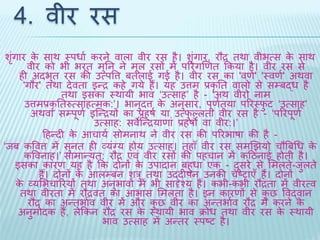 4. वीर रस
शृंगार के साथ स्पर्धा करने वाला वीर रस है। शृंगार, रौद्र तथा वीभत्स के साथ
वीर को भी भरत मुनि ने मूल रसों में परिगणित किया है। वीर रस से
ही अदभुत रस की उत्पत्ति बतलाई गई है। वीर रस का 'वर्ण' 'स्वर्ण' अथवा
'गौर' तथा देवता इन्द्र कहे गये हैं। यह उत्तम प्रकृति वालो से सम्बद्ध है
तथा इसका स्थायी भाव 'उत्साह' है - 'अथ वीरो नाम
उत्तमप्रकृतिरुत्साहत्मक:'। भानुदत्त के अनुसार, पूर्णतया परिस्फुट 'उत्साह'
अथवा सम्पूर्ण इन्द्रियों का प्रहर्ष या उत्फुल्लता वीर रस है - 'परिपूर्ण
उत्साह: सर्वेन्द्रियाणां प्रहर्षो वा वीर:।'
हिन्दी के आचार्य सोमनाथ ने वीर रस की परिभाषा की है -
'जब कवित्त में सुनत ही व्यंग्य होय उत्साह। तहाँ वीर रस समझियो चौबिधि के
कविनाह।' सामान्यत: रौद्र एवं वीर रसों की पहचान में कठिनाई होती है।
इसका कारण यह है कि दोनों के उपादान बहुधा एक - दूसरे से मिलते-जुलते
हैं। दोनों के आलम्बन शत्रु तथा उद्दीपन उनकी चेष्टाएँ हैं। दोनों
के व्यभिचारियों तथा अनुभावों में भी सादृश्य हैं। कभी-कभी रौद्रता में वीरत्व
तथा वीरता में रौद्रवत का आभास मिलता है। इन कारणों से कुछ विद्वान
रौद्र का अन्तर्भाव वीर में और कुछ वीर का अन्तर्भाव रौद्र में करने के
अनुमोदक हैं, लेकिन रौद्र रस के स्थायी भाव क्रोध तथा वीर रस के स्थायी
भाव उत्साह में अन्तर स्पष्ट है।